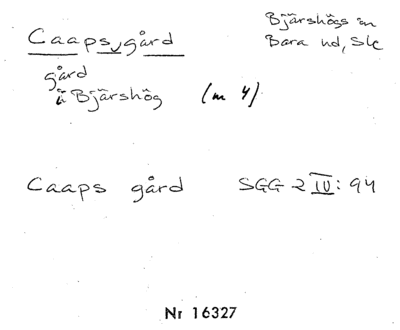 Caaps gård
Bjärshögs sn
Bara hd, Sk
gård
i Bjärshög (m 4)
Caaps gård SGG 2 IV: 94
Nr 16327